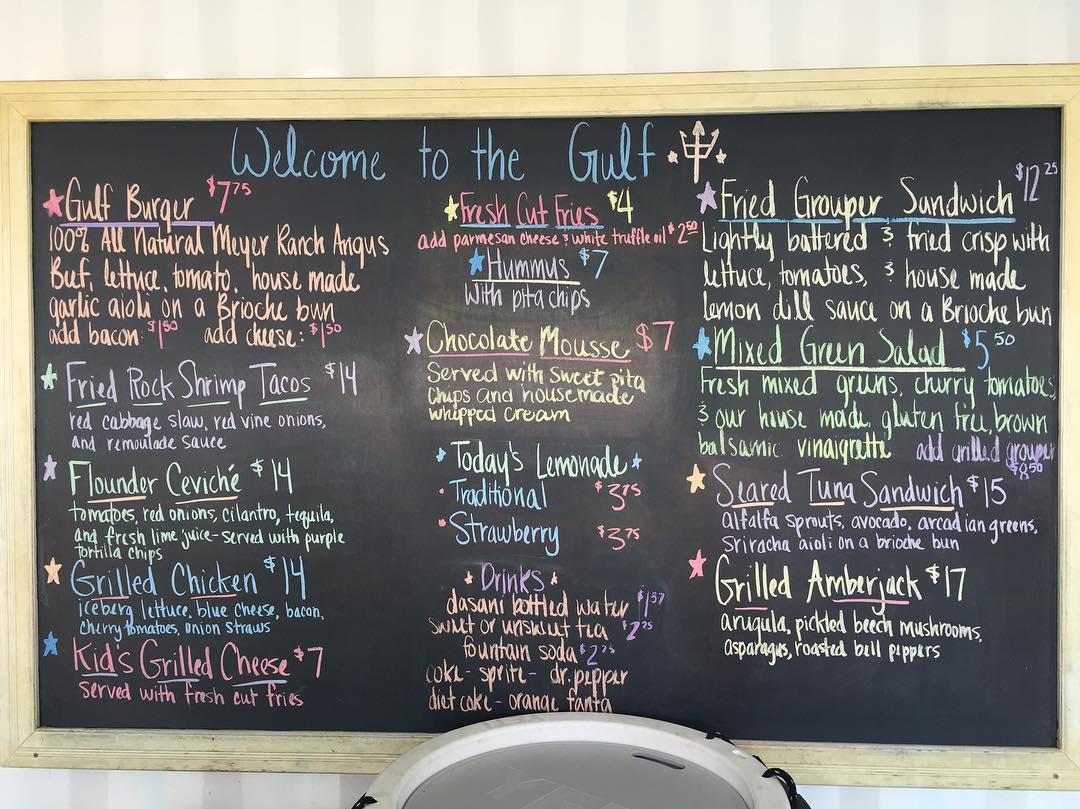 Welcome to the Gulf
Gulf Burger $7.75
100% All Natural Meyer Ranch Angus
Beef, lettuce, tomato, house made
garlic aioli on a Brioche bun
add bacon: $1.50 add cheese: $1.50
Fried Rock Shrimp Tacos $14
red cabbage slaw, red vine onions,
and remoulade sauce
Flounder Ceviché $14
tomatoes, red onions, cilantro, tequila,
and fresh lime juice - served with purple
tortilla chips
Grilled Chicken $14
iceberg lettuce, blue cheese, bacon,
cherry tomatoes, onion straws
Kid's Grilled Cheese $7
served with fresh cut fries
Fresh Cut Fries $4
add parmesan cheese & white truffle oil $2.50
Hummus $7
with pita chips
Chocolate Mousse $7
Served with sweet pita
chips and housemade
whipped cream
Today's Lemonade
Traditional $3.75
Strawberry $3.75
Drinks
dasani bottled water $1.37
sweet or unsweet tea $2.25
fountain soda $2.25
coke - sprite - dr. pepper
diet coke - orange fanta
Fried Grouper Sandwich $12.25
Lightly battered & fried crisp with
lettuce, tomatoes, & house made
lemon dill sauce on a Brioche bun
Mixed Green Salad $5.50
Fresh mixed greens, cherry tomatoes,
& our house made, gluten free, brown
balsamic vinaigrette add grilled grouper
$8.50
Seared Tuna Sandwich $15
alfalfa sprouts, avocado, arcadian greens,
Sriracha aioli on a brioche bun
Grilled Amberjack $17
arugula, pickled beech mushrooms,
asparagus, roasted bell peppers